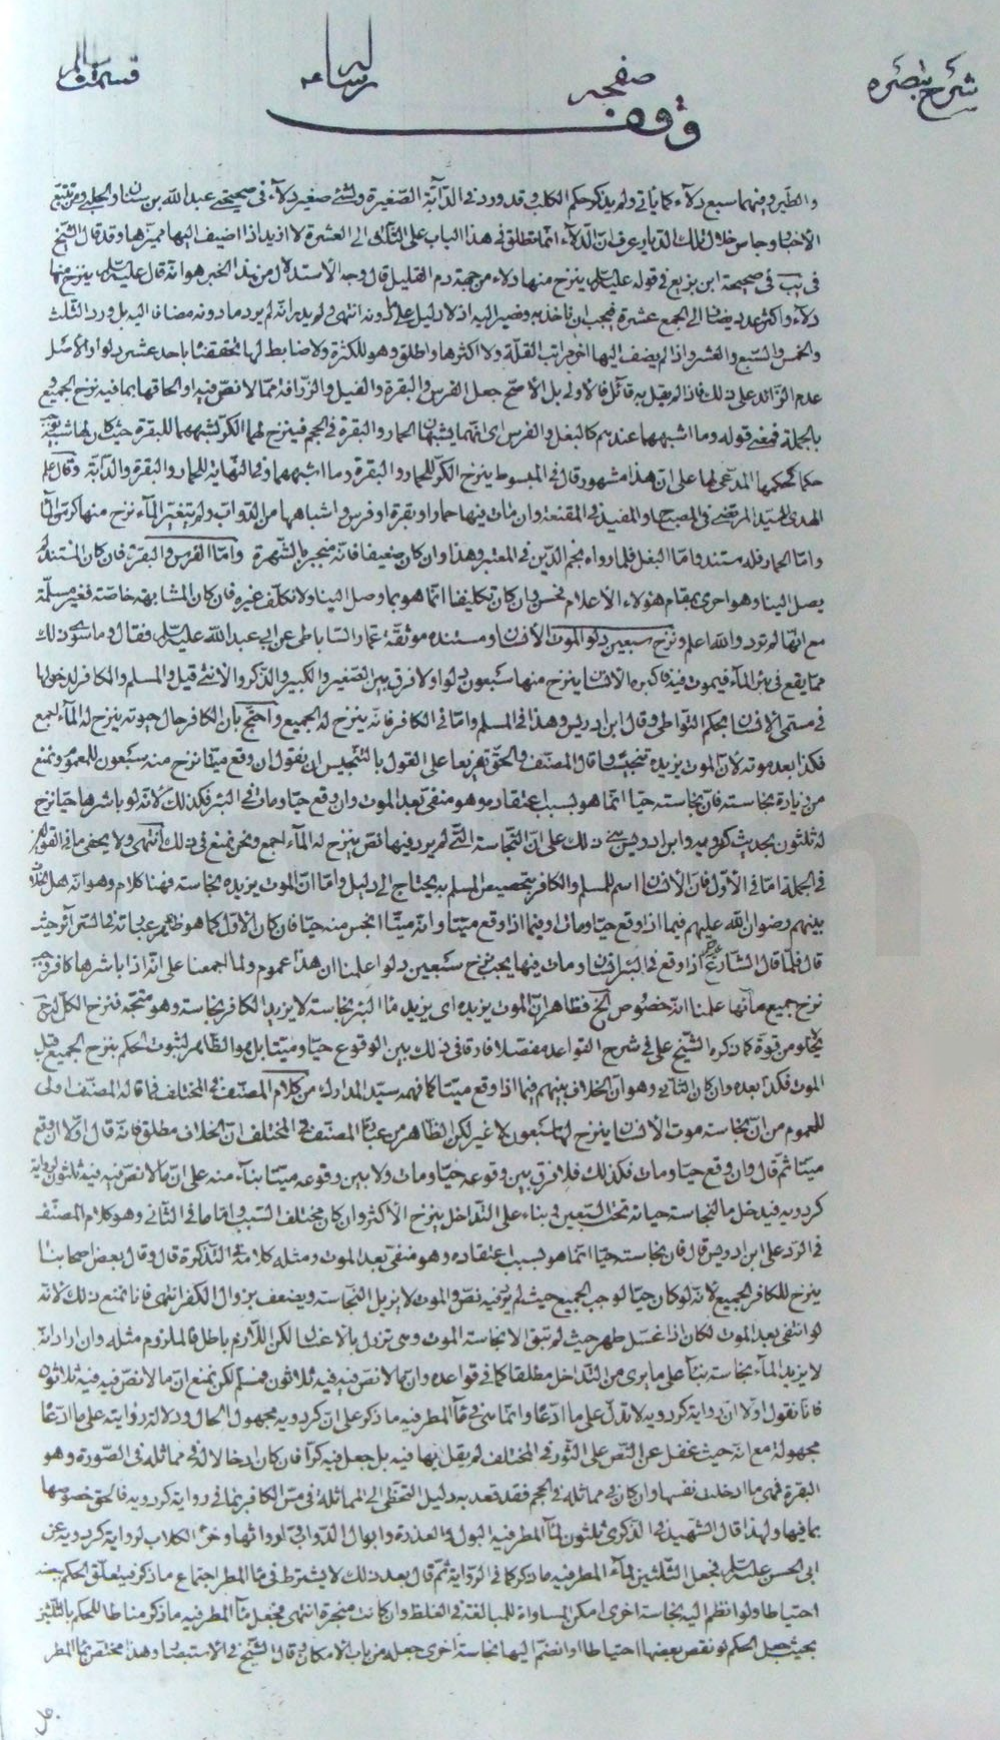 شرح تبصره
صفحه
وقف
والطير وفيهما سبع دلاء كما يأتي ولم يذكر حكم الكلب وقد ورد في الدابة الصغيرة ولشيء صغير دلاء في صحيحتي عبد الله بن سنان والحلبي ومن تتبع
الأخبار وجاس خلال تلك الديار عرف ان الدلاء انما تطلق في هذا الباب على الثلاثة الى العشرة لا ازيد اذا اضيف اليها مميزها وقد قال الشيخ
في يب في صحيحة ابن بزيع في قوله عليه السلام ينزح منها دلاء من جهة دم القليل قال وجه الاستدلال من هذا الخبر هو انه قال عليه السلام ينزح منها
دلاء واكثر عدد يضاف الى الجمع عشرة فيجب ان ناخذ به ونصير اليه اذ لا دليل على ما دونه انتهى
والخمس والسبع والعشر واذا لم يضف اليها اخر مراتب القلة ولا اكثرها واطلق وهو للكثرة ولا ضابط لها تحققنا باحد عشر دلوا والاصل
عدم الزائد على ذلك فاذا لم يقل به قائل فالأولى بل الأصح جعل الفرس والبقرة والفيل والزرافة مما لا نص فيه او الحاقها بما فيه نزح الجميع
بالجملة فمعنى قوله وما اشبههما عندهم كالبغل والفرس اي انهما يشبهان الحمار والبقرة في الحجم فينزح لهما الكر لشبههما للبقرة
على ان هذا مشهور قال في المبسوط ينزح الكر للحمار والبقرة وما اشبههما وفي النهاية للحمار والبقرة والدابة وقال علم
الهدى السيد المرتضى في المصباح والمفيد في المقنعة وان مات فيها حمار او بقرة او فرس واشباهها من الدواب ولم يتغير الماء نزح منها كر من الماء
واما الحمار فله مستند واما البغل فلما رواه نجم الدين في المعتبر وهذا وان كان ضعيفا فانه منجبر بالشهرة واما الفرس والبقرة فان كان المستند لم
يصل الينا وهو احرى بمقام هؤلاء الأعلام فحسن وان كان تكليفنا انما هو بما وصل الينا ولا نكلف غيره فان كان المشابهة خاصة فغير مسلمة
مع انها لم ترد والله اعلم ونزح سبعين دلوا لموت الأنسان ومستنده موثقة عمار الساباطي عن ابي عبد الله عليه السلام فقال وما سوى ذلك
مما يقع في بئر الماء فيموت فيه فاكبره الأنسان ينزح منها سبعون دلوا ولا فرق بين الصغير والكبير والذكر والأنثى قيل والمسلم والكافر لدخولها
في مسمى الإنسان بحكم التواطي وقال ابن ادريس وهذا في المسلم واما في الكافر فانه ينزح له الجميع واحتج بان الكافر حال حيوته ينزح له الماء اجمع
فكذا بعد موته لأن الموت يزيده تنجيسا وقال المصنف والحق تفريعا على القول بالتنجيس ان يقول ان وقع ميتا نزح منه سبعون للعموم ونمنع
من زيادة نجاسته فان نجاسته حيا انما هو بسبب اعتقاده وهو منفي بعد الموت وان وقع حيا ومات في البئر فكذلك لأنه لو باشرها حيا نزح
له ثلثون بحديث كردويه وابن ادريس بنى ذلك على ان النجاسة التي لم يرد فيها نص ينزح له الماء اجمع ونحن نمنع في ذلك انتهى ولا يخفى ما في القولين
في الجملة اما في الأول فان الأنسان اسم للمسلم والكافر فتخصيص المسلم به يحتاج الى دليل واما ان الموت يزيده نجاسة فهنا كلام وهو انه هل الخلاف
بينهم رضوان الله عليهم فيما اذا وقع حيا ومات او فيما اذا وقع ميتا وانه ميتا انجس منه حيا فان كان الأول كما هو ظاهر عبارته في السرائر حيث
قال فلما قال الشارع اذا وقع في البئر انسان ومات فيها يجب نزح سبعين دلوا علمنا ان هذا عموم ولما اجمعنا على انه اذا باشرها كافر وجب
نزح جميع مائها علمنا انه خصوص الخ فظاهر ان الموت يزيده اي يزيد ماء البئر نجاسة لا يزيد الكافر نجاسة وهو متجه فنزح الكل له
يخلو من قوة كما ذكره الشيخ علي في شرح القواعد مفصلا فارقا في ذلك بين الوقوع حيا وميتا بل هو الظاهر لثبوت الحكم بنزح الجميع قبل
الموت فكذا بعده وان كان الثاني وهو ان الخلاف بينهم فيما اذا وقع ميتا كما فهمه سيد المدارك من كلام المصنف في المختلف فما قاله المصنف اولى
للعموم من ان نجاسة موت الأنسان ينزح لها سبعون لا غير لكن الظاهر من عبارة المصنف في المختلف ان الخلاف مطلق فانه قال اولا ان وقع
ميتا ثم قال وان وقع حيا ومات فكذلك فلا فرق بين وقوعه حيا ومات ولا بين وقوعه ميتا بناء منه على ان ما لا نص فيه فيه ثلثون لرواية
كردويه فيدخل ما لنجاسة حياته تحت السبعين بناء على التداخل ينزح الأكثر وان كان مختلف السبب واما ما في الثاني وهو كلام المصنف
في الرد على ابن ادريس قال فان نجاسته حيا انما هو بسبب اعتقاده وهو منفي بعد الموت ومثله كلامه في التذكرة قال وقال بعض اصحابنا
ينزح للكافر الجميع لأنه لو كان حيا لوجب الجميع حيث لم يرد فيه نص والموت لا يزيل النجاسة ويضعف بزوال الكفر انتهى فانا نمنع ذلك لأنه
لو انتفى بعد الموت لكان اذا غسل طهر حيث لم تبق الا نجاسة الموت وهي تزول بالأغسال لكن اللازم باطل فالملزوم مثله وان اراد انه
لا يزيد الماء نجاسة بناء على ما يرى من التداخل مطلقا كما في قواعده وان ما لا نص فيه فيه ثلاثون فمسلم لكن نمنع ان ما لا نص فيه فيه ثلاثون
فانا نقول اولا ان رواية كردويه لا تدل على ما ادعا وانما هي في ماء المطر فيه ما ذكر على ان كردويه مجهول الحال ودلالة روايته على ما ادعا
مجهولة مع انه حيث غفل عن النص على الثور في المختلف لم يقل بها فيه بل جعل فيه كرا فان كان ادخالا له في مماثله في الصورة وهو
البقرة فهي ما ادخلت نفسها وان كان في مماثله في الحجم فقد قعد به دليل التخطي الى المماثلة في مس الكافر بما في رواية كردويه فالحق خصوصها
بما فيها ولهذا قال الشهيد في الذكرى ثلثون لماء المطر فيه البول والعذرة وابوال الدواب وارواثها وخرء الكلاب لرواية كردويه عن
ابي الحسن عليه السلام فجعل الثلثين لماء المطر فيه ما ذكر كما في الرواية ثم قال بعد ذلك لا يشترط في ماء المطر اجتماع ما ذكر فيتعلق الحكم ببعضه
احتياطا ولو انظم اليه نجاسة اخرى امكن المساواة للمبالغة في الغلظ وان كانت منجرة انتهى فجعل ماء المطر فيه ما ذكر مناطا للحكم بالثلثين
بحيث جعل الحكم لو نقص بعضها احتياطا او انضم اليها نجاسة اخرى جعله من باب الامكان وقال الشيخ في الاستبصار وهذا مختص بماء المطر